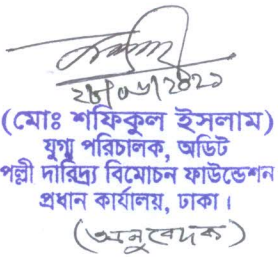 ২৮/০৬/২০২১
(মোঃ শফিকুল ইসলাম)
যুগ্ম পরিচালক, অডিট
পল্লী দারিদ্র্য বিমোচন ফাউন্ডেশন
প্রধান কার্যালয়, ঢাকা।
(অনুবেদক)